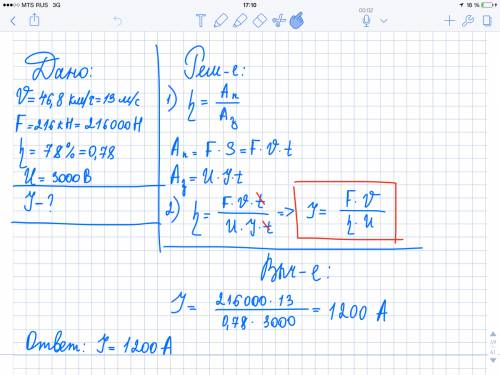 MTS RUS 3G 17:10 16 %
00:02
Дано:
V = 46,8 км/ч = 13 м/с
F = 216 кН = 216000 Н
η = 78% = 0,78
U = 3000 В
I - ?
Реш-е:
1) η = Aп / Aз
Aп = F · S = F · V · t
Aз = U · I · t
2) η = F · V · t / U · I · t => I = F · V / η · U
Выч-е:
I = 216000 · 13 / 0,78 · 3000 = 1200 A
Ответ: I = 1200 A